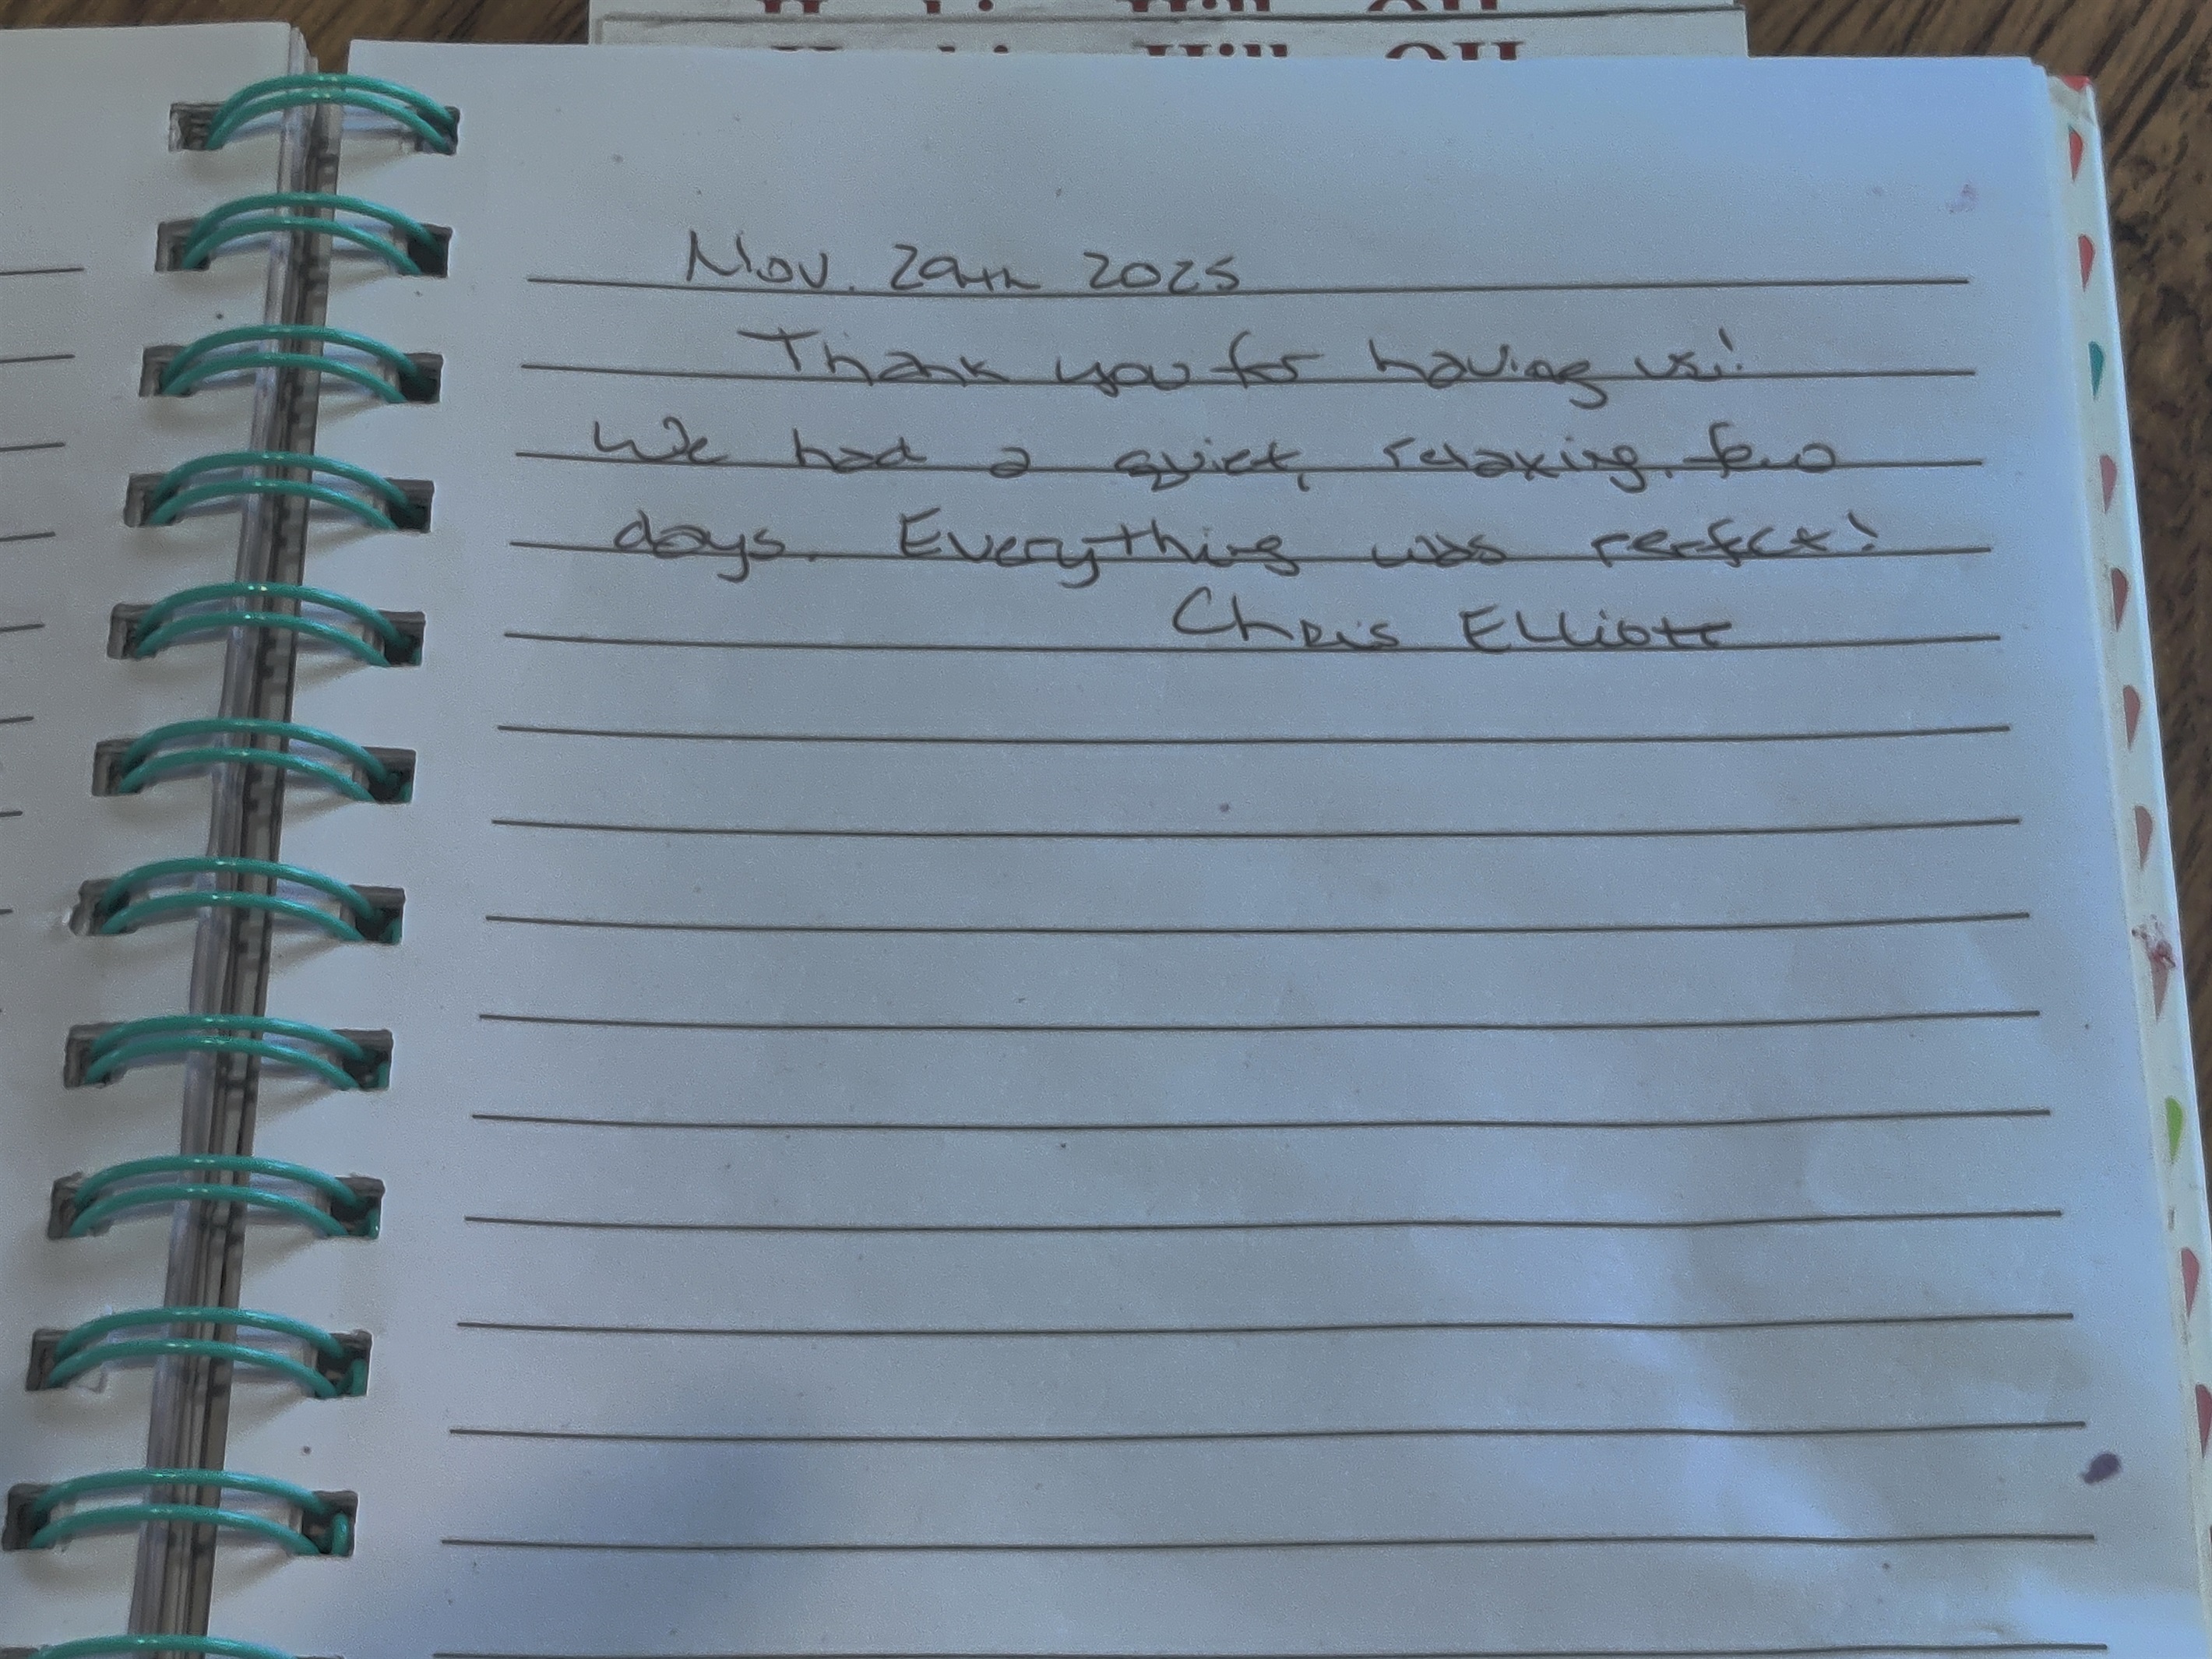 Hill OH
Hill OH
Nov. 29th 2025
Thank you for having us!
We had a quiet, relaxing few
days. Everything was perfect!
Chris Elliott